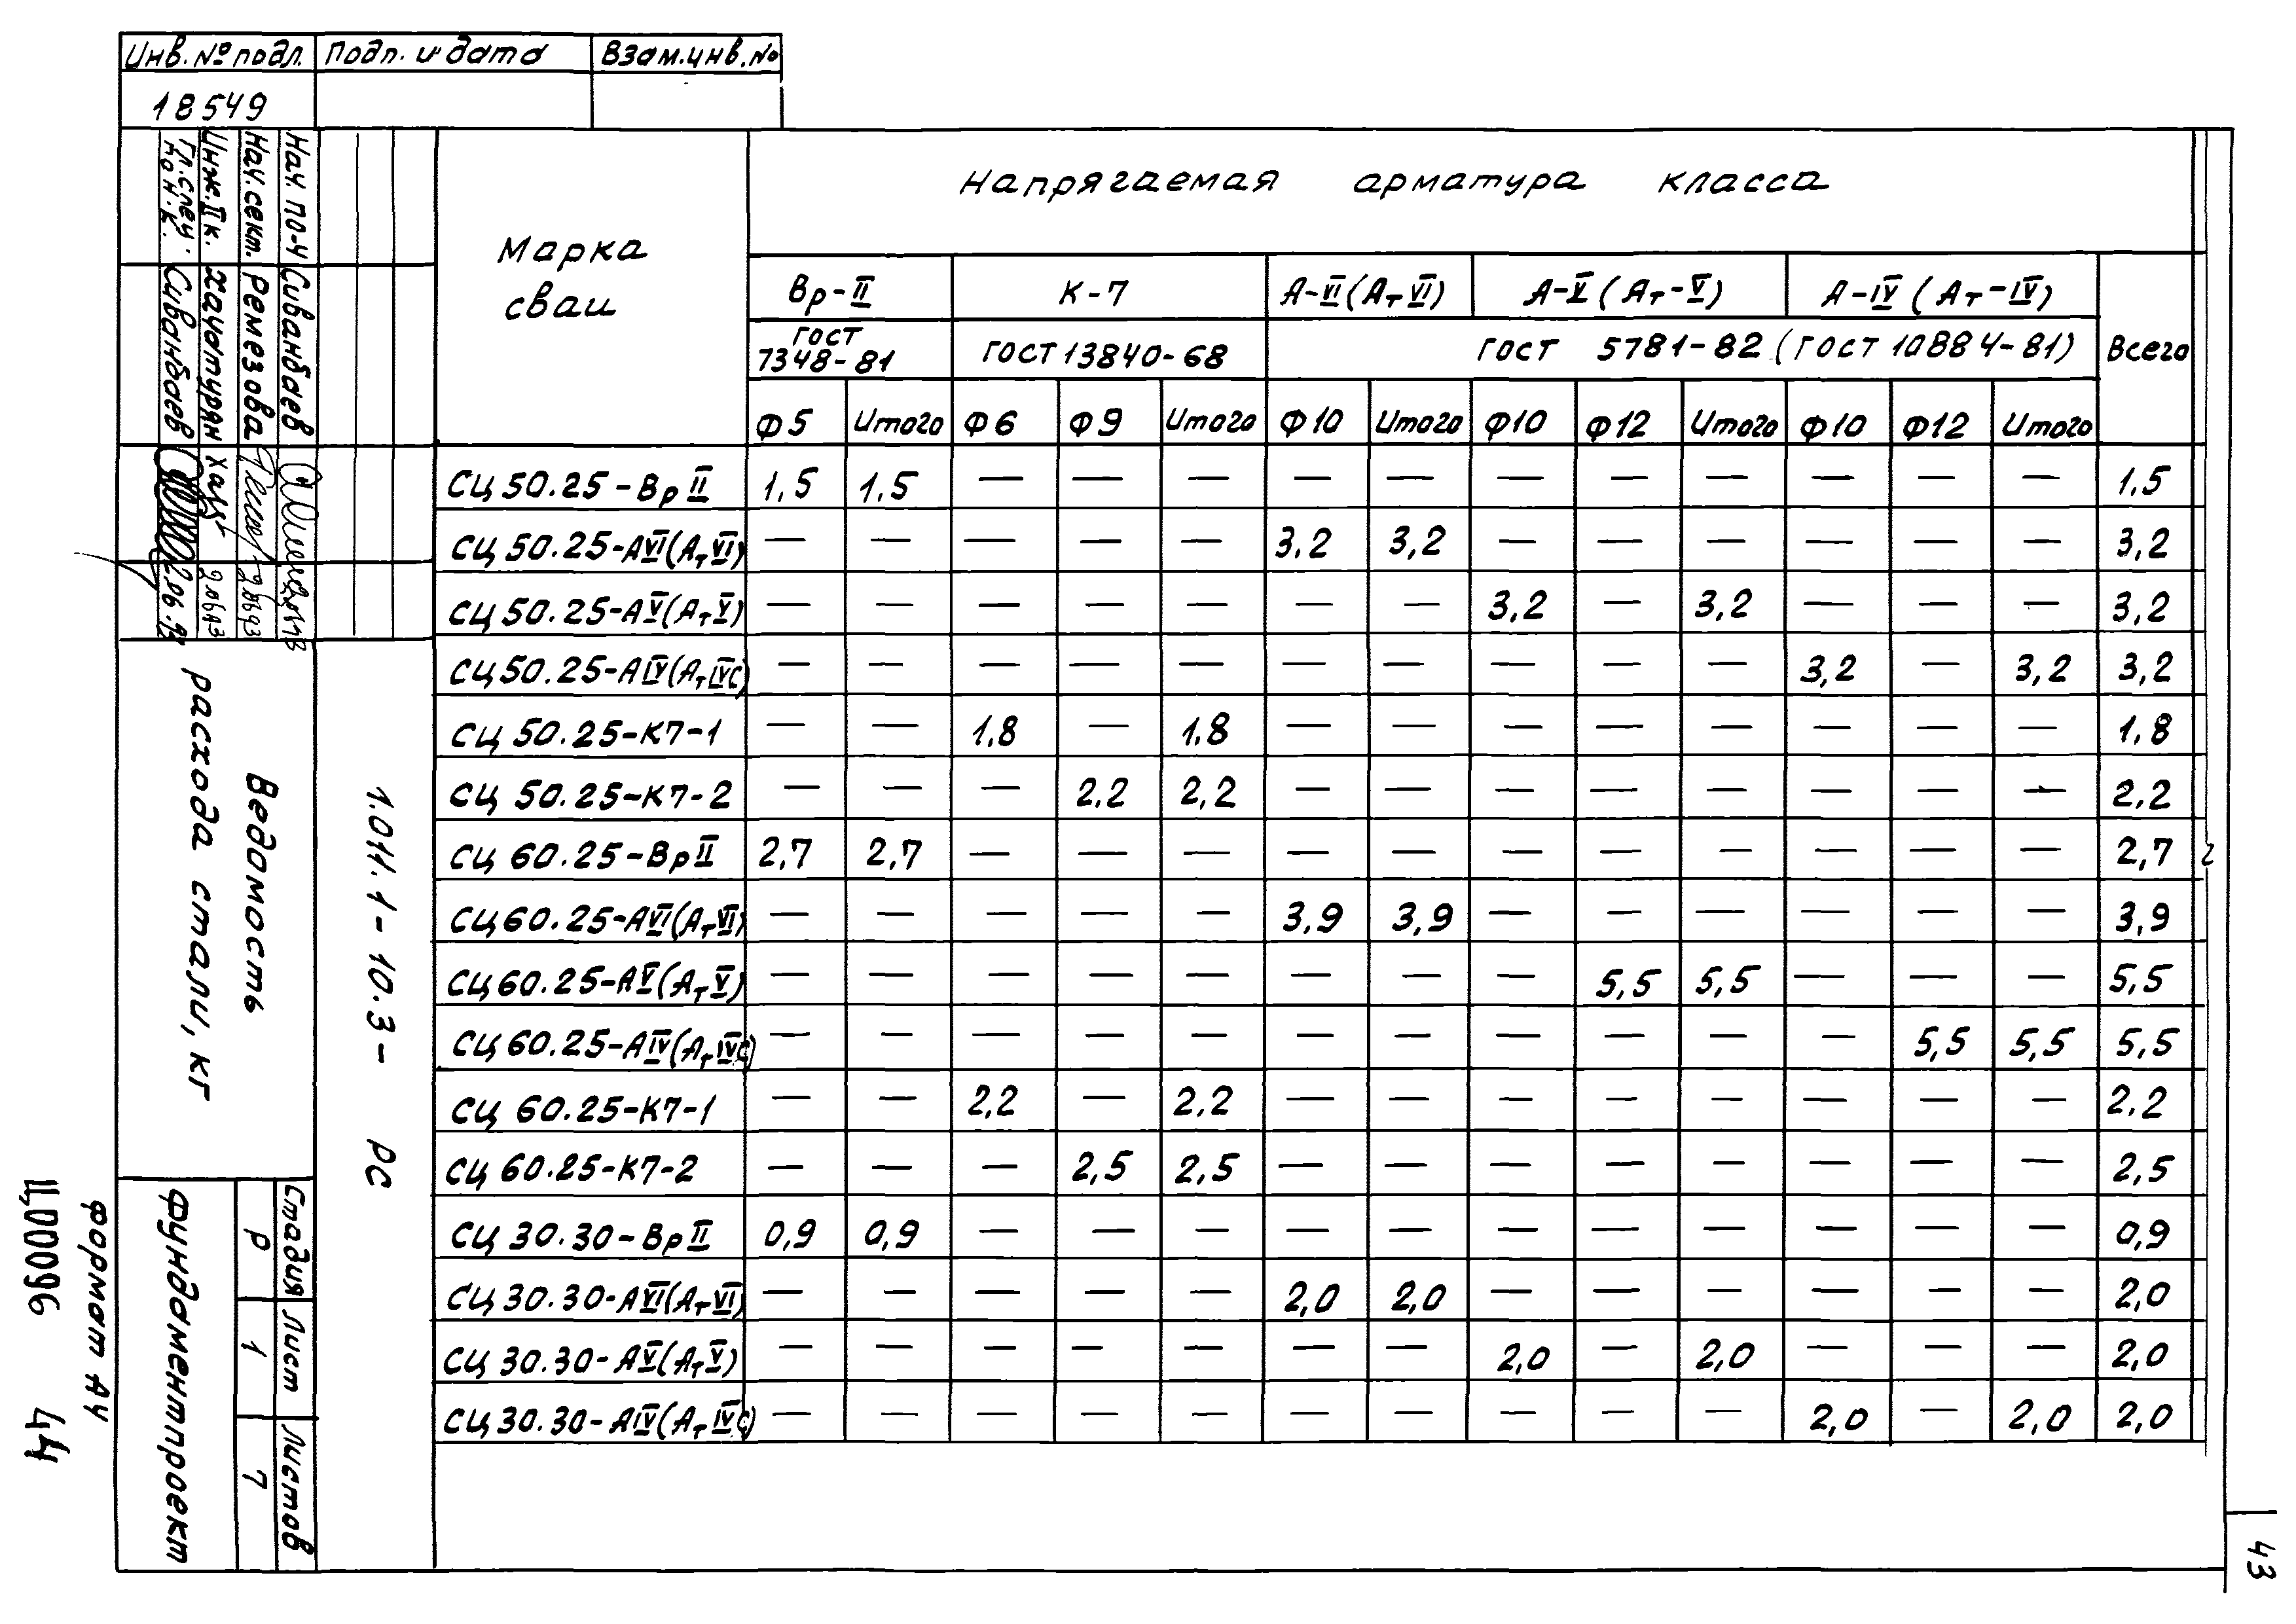 Инв. № подл. Подп. и дата Взам.инв.№
18549
Нач. по-ч Сиванбаев
Нач. сект. Ремезова
Инж. II к. Хачатурян
Гл. спец. Сиванбаев
н. к.
Марка сваи
Напрягаемая арматура класса
Вр-II К-7 А-VI (Ат VI) А-V (Ат-V) А-IV (Ат-IV) Всего
ГОСТ 7348-81 ГОСТ 13840-68 ГОСТ 5781-82 (ГОСТ 10884-81)
Ф5 Итого Ф6 Ф9 Итого Ф10 Итого Ф10 Ф12 Итого Ф10 Ф12 Итого
СЦ 50.25-Вр II 1,5 1,5 — — — — — — — — — — — 1,5
СЦ 50.25-АVI(АтVI) — — — — — 3,2 3,2 — — — — — — 3,2
СЦ 50.25-АV(АтV) — — — — — — — 3,2 — 3,2 — — — 3,2
СЦ 50.25-АIV(АтIVС) — — — — — — — — — — 3,2 — 3,2 3,2
СЦ 50.25-К7-1 — — 1,8 — 1,8 — — — — — — — — 1,8
СЦ 50.25-К7-2 — — — 2,2 2,2 — — — — — — — — 2,2
СЦ 60.25-Вр II 2,7 2,7 — — — — — — — — — — — 2,7
СЦ 60.25-АVI(АтVI) — — — — — 3,9 3,9 — — — — — — 3,9
СЦ 60.25-АV(АтV) — — — — — — — — 5,5 5,5 — — — 5,5
СЦ 60.25-АIV(АтIVС) — — — — — — — — — — — 5,5 5,5 5,5
СЦ 60.25-К7-1 — — 2,2 — 2,2 — — — — — — — — 2,2
СЦ 60.25-К7-2 — — — 2,5 2,5 — — — — — — — — 2,5
СЦ 30.30-Вр II 0,9 0,9 — — — — — — — — — — — 0,9
СЦ 30.30-АVI(АтVI) — — — — — 2,0 2,0 — — — — — — 2,0
СЦ 30.30-АV(АтV) — — — — — — — 2,0 — 2,0 — — — 2,0
СЦ 30.30-АIV(АтIVС) — — — — — — — — — — 2,0 — 2,0 2,0
1.011.1-10.3- РС
Ведомость
расхода стали, кг
Стадия Лист Листов
Р 1 7
Фундаментпроект
формат А4
Ц00096 44
43